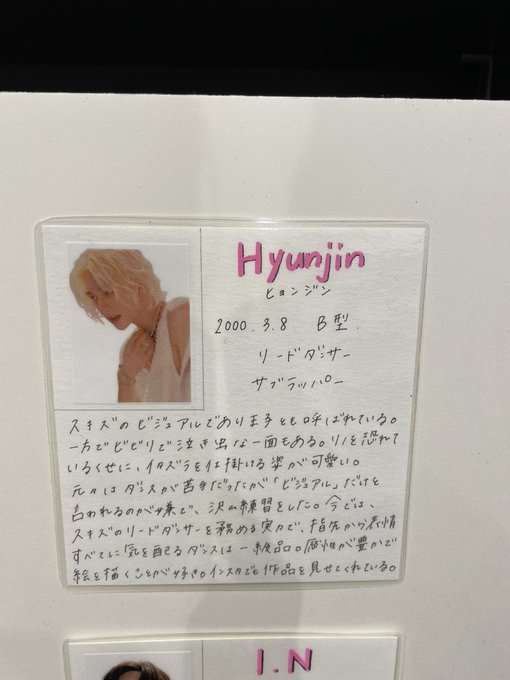 Hyunjin
ヒョンジン
2000.3.8 B型.
リードダンサー
サブラッパー
スキズのビジュアルであり王子とも呼ばれている。
一方でビビりで泣き虫な一面もある。リノを恐れて
いるくせに、イタズラを仕掛ける姿が可愛い。
元々はダンスが苦手だったが「ビジュアル」だけと
言われるのが嫌で、沢山練習をした。今では、
スキズのリードダンサーを務める実力で、指先から表情
すべてに気を配るダンスは一級品。感性が豊かで
絵を描くことが好き。インスタでも作品を見せてくれている。
I.N